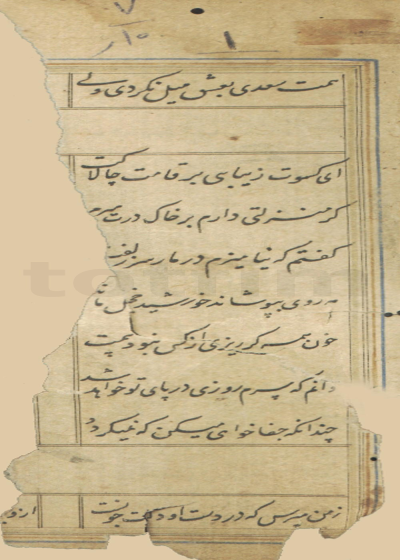 همت سعدی بعشق میل نکردی ولی
ای کسوت زیبایی بر قامت چالاکت
گر منزلتی دارم بر خاک درت
گفتم که نیاویزم در مار سر زلفت
مه روی بپوشاند خورشید خجل
خون همه کس ریزی از کس نبود بیمت
دانم که سرم روزی در پای تو خواهد شد
چندانکه جفا خواهی میکن که نمیگردد
زمن مپرس که در دست او دلت چونست
ازو